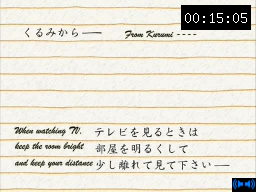 00:15:05
くるみから── From Kurumi ----
When watching TV, テレビを見るときは
keep the room bright 部屋を明るくして
and keep your distance 少し離れて見て下さい──